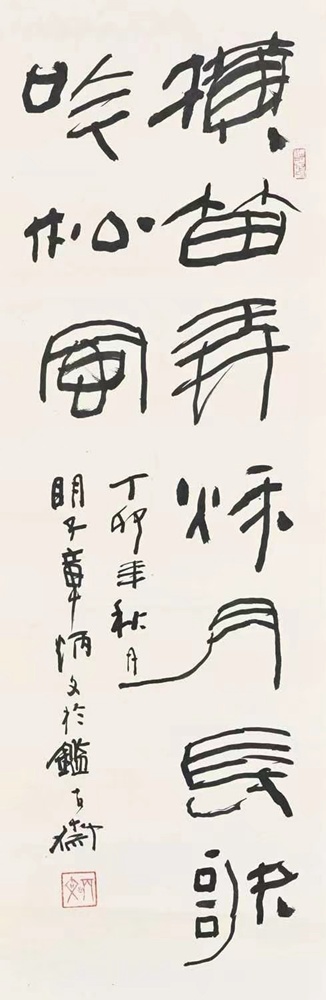 横笛弄秋月長歌
吟松風
丁卯年秋月
明子章炳文於鑑古齋